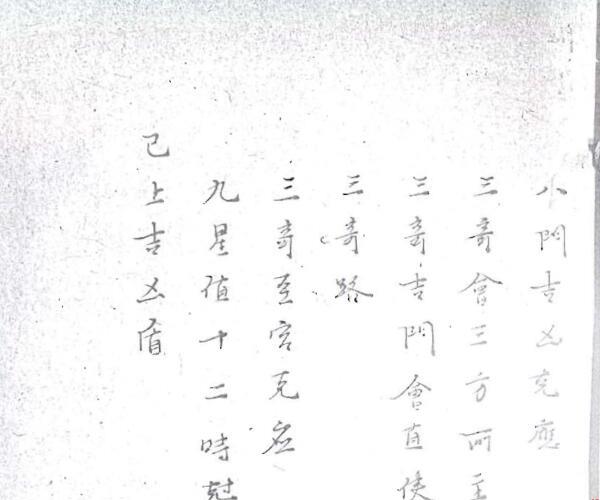 八門吉凶克應
三奇會三方所主
三奇吉門會直使
三奇路
三奇至宮克应
九星值十二時尅
已上吉凶盾